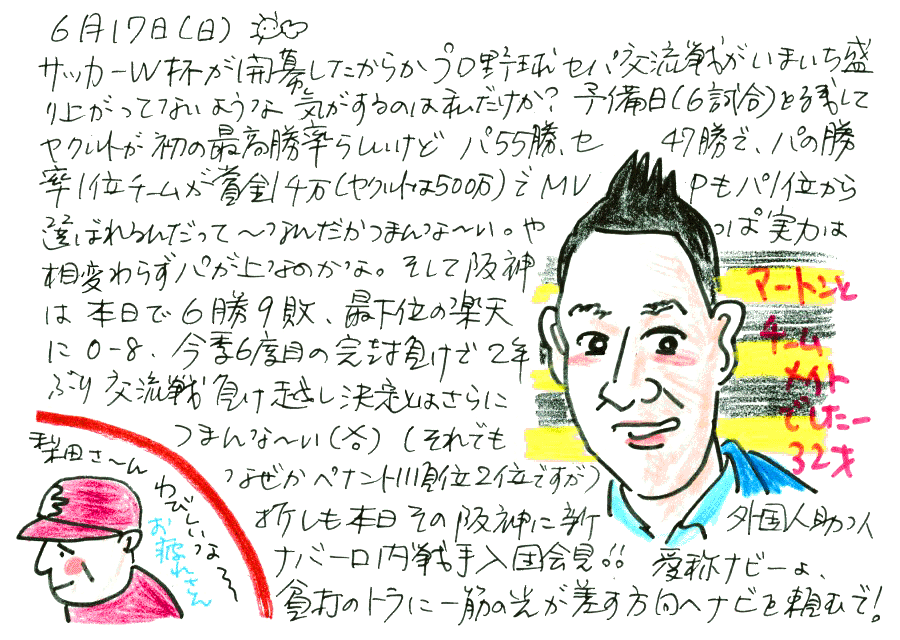 6月17日(日)
サッカーW杯が開幕したからかプロ野球セパ交流戦がいまいち盛
り上がってないような気がするのは私だけか? 予備日(6試合)を残して
ヤクルトが初の最高勝率らしいけど パ55勝、セ 47勝で、パの勝
率1位チームが賞金14万(ヤクルトは500万)でMV Pもパ1位から
選ばれるんだって〜なんだかつまんな〜い。や っぱ実力は
相変わらずパが上なのかな。そして阪神
は本日で6勝9敗、最下位の楽天
に0-8、今季6度目の完封負けで2年
ぶり交流戦負け越し決定とはさらに
つまんな〜い(笑)(それでも
なぜかペナント順位2位ですが)
折しも本日その阪神に新 外国人助っ人
ナバーロ内戦手入団会見!! 愛称ナビーよ、
貧打のトラに一筋の光が差す方向へナビを頼むで!
マートンと
チーム
メイト
でしたー
32才
梨田さ〜ん
わびしいなぁ〜
お疲れさん